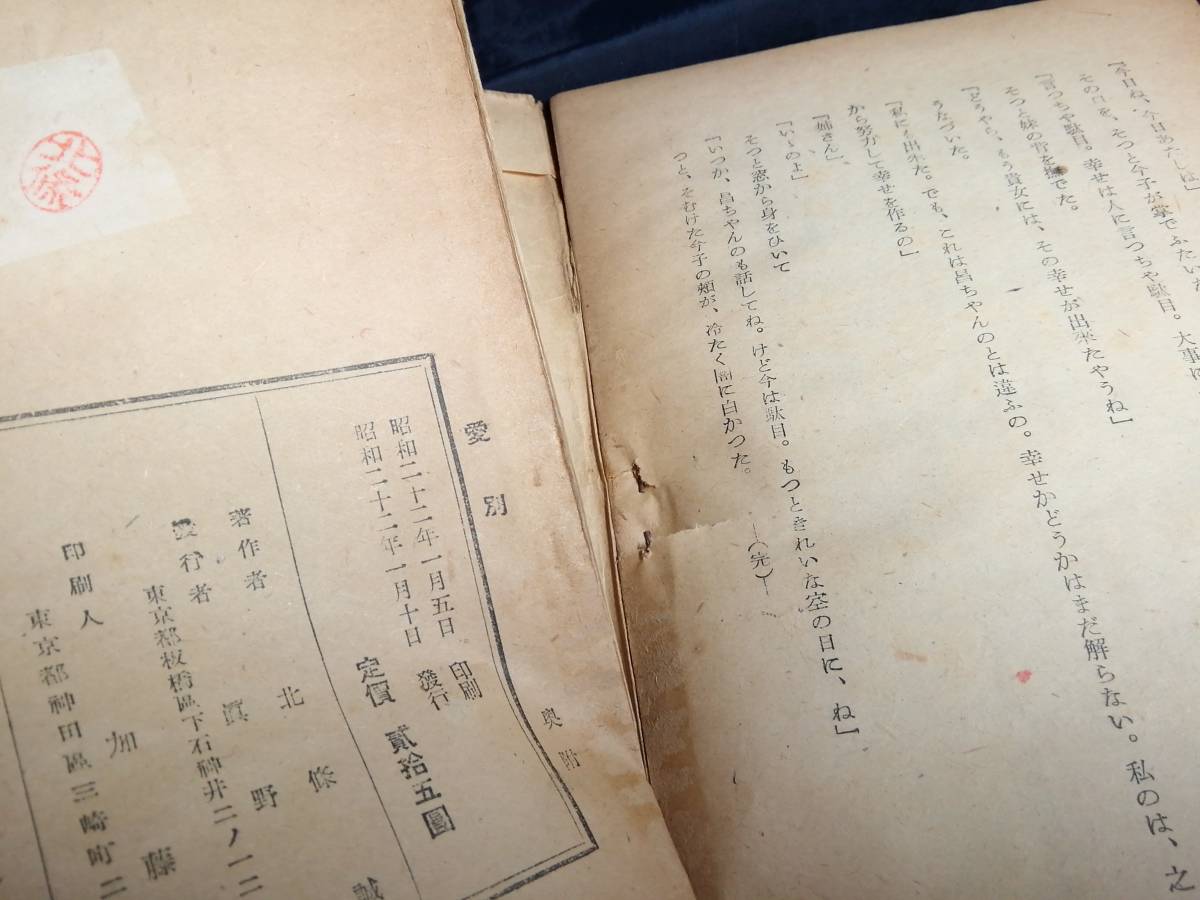 「今日ね、今日あたしね」
その口を、そつと今子が掌でふたいた
「言つちや駄目。幸せは人に言つちや駄目。大事に
そつと妹の背を撫でた。
「どうやら、もう貴女には、その幸せが出来たやうね」
うなづいた。
「私にも出来た。でも、これは昌ちやんのとは違ふの。幸せかどうかはまだ解らない。私のは、之
から努力して幸せを作るの」
「姉さん」
「いゝのよ」
そつと窓から身をひいて
「いつか、昌ちやんのも話してね。けど今は駄目。もつときれいな空の日に、ね」
つと、そむけた今子の頬が、冷たく闇に白かつた。
―(完)―
愛別
奥附
昭和二十二年一月五日 印刷
昭和二十二年一月十日 發行
定價 貳拾五圓
著作者 北條誠
發行者 眞野
東京都板橋區下石神井二ノ一二
印刷人 加藤
東京都神田區三崎町二